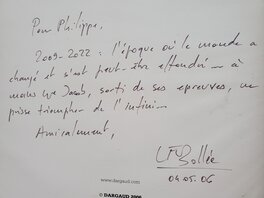 Pour Philippe,
2009-2022 : l'époque où le monde a
changé et s'est peut-être effondré — à
moins que Jacob, sorti de ses épreuves, ne
puisse triompher de l'infini...
Amicalement,
LFBollée
04.05.06
www.dargaud.com
© DARGAUD 2006